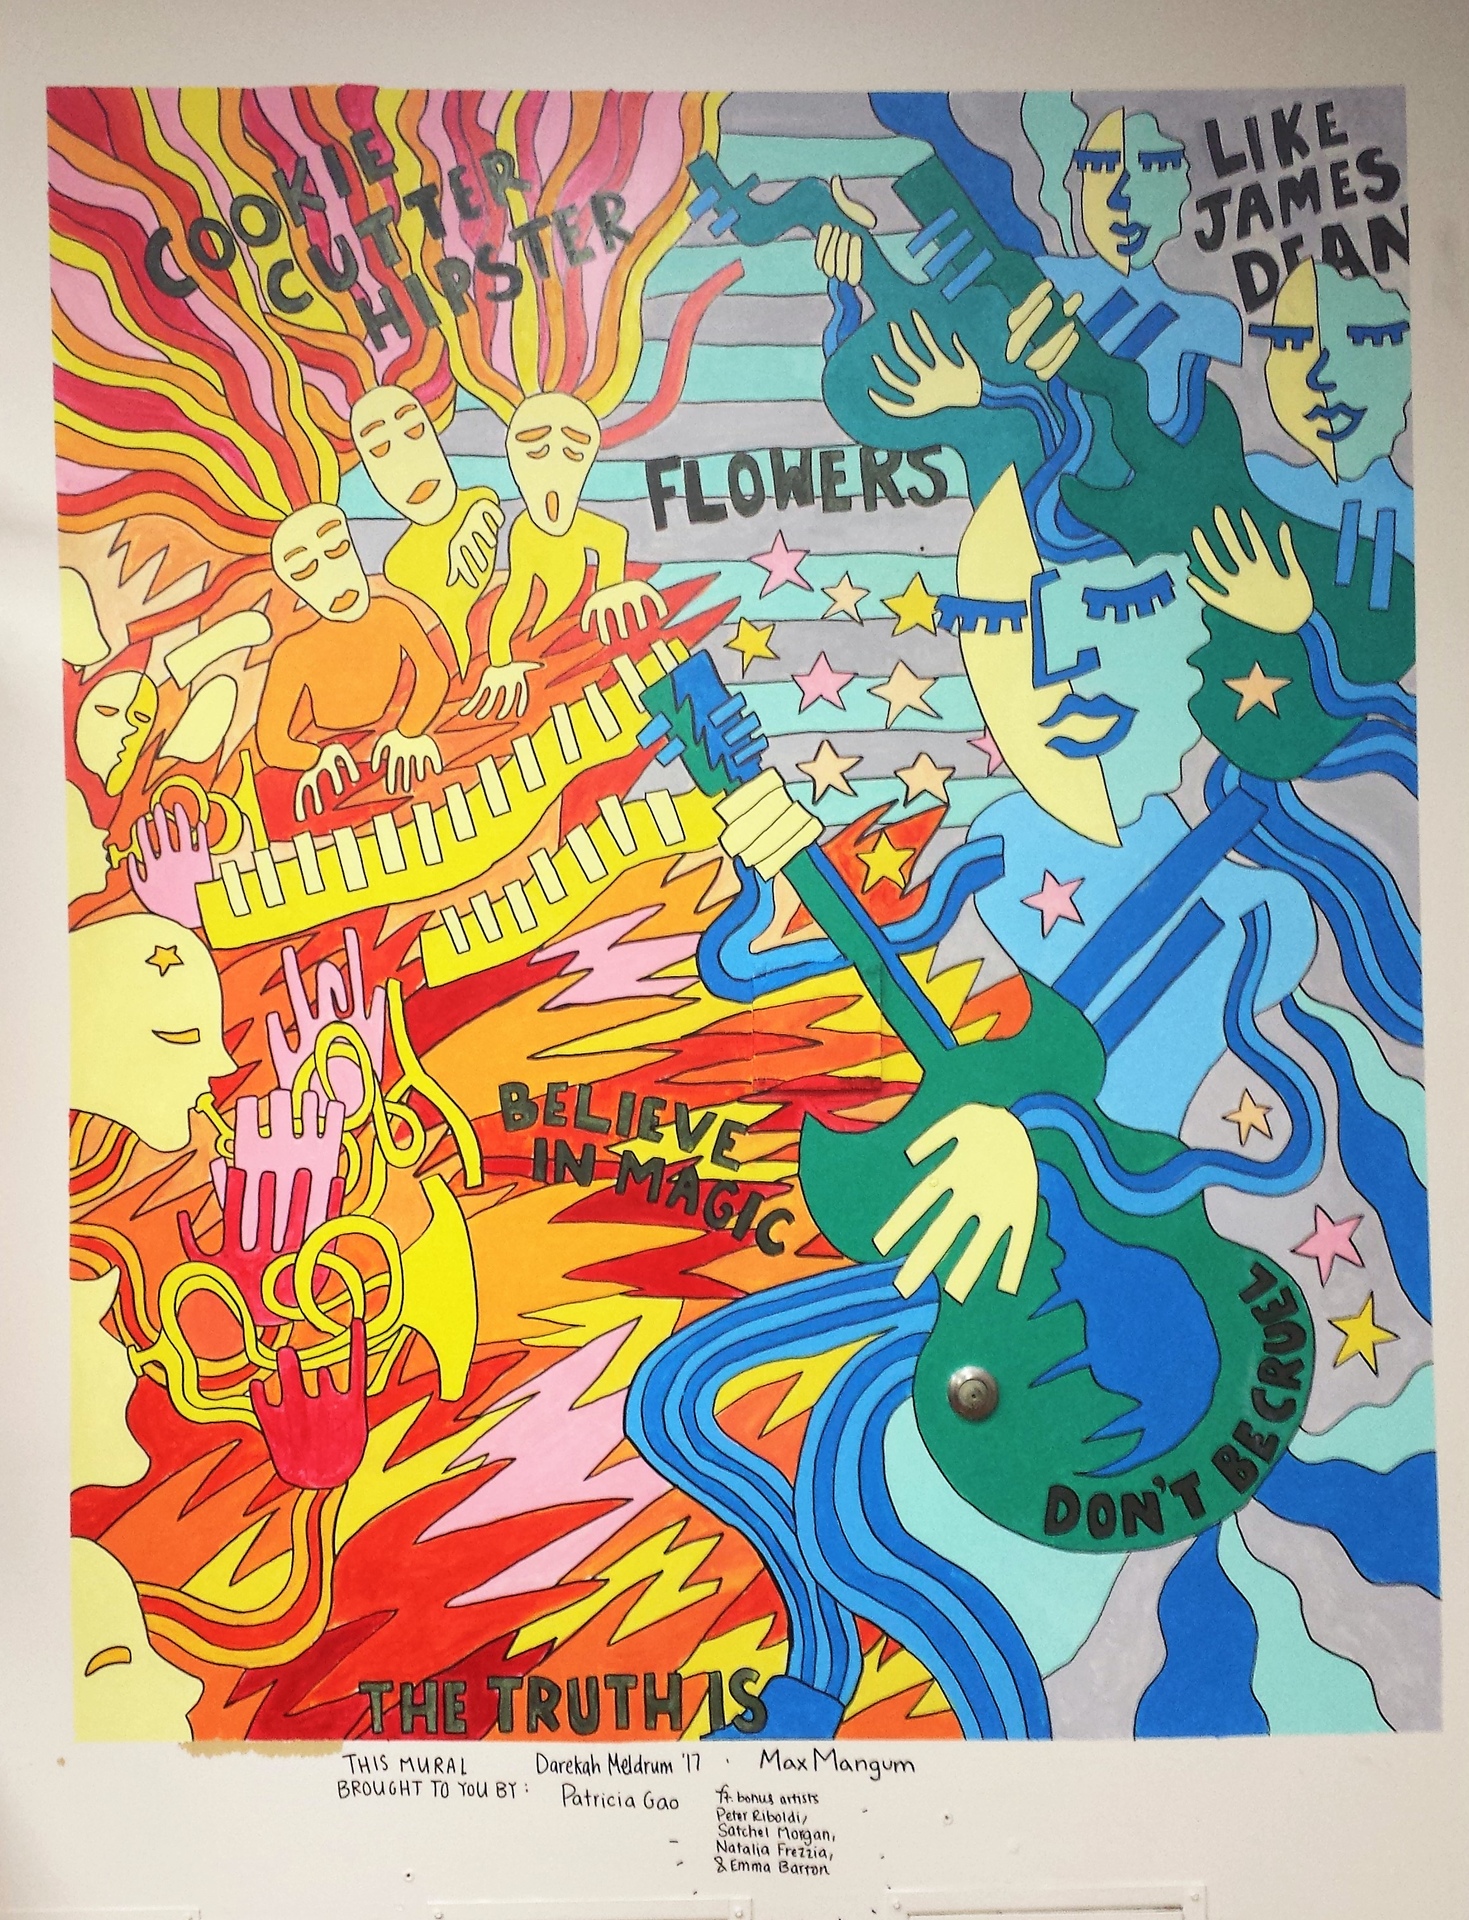 COOKIE
CUTTER
HIPSTER
LIKE
JAMES
DEAN
FLOWERS
BELIEVE
IN MAGIC
DON'T BE CRUEL
THE TRUTH IS
THIS MURAL
BROUGHT TO YOU BY:
Darekah Meldrum '17 · Max Mangum
Patricia Gao
ft. bonus artists
Peter Riboldi,
Satchel Morgan,
Natalia Frezzia,
& Emma Barron